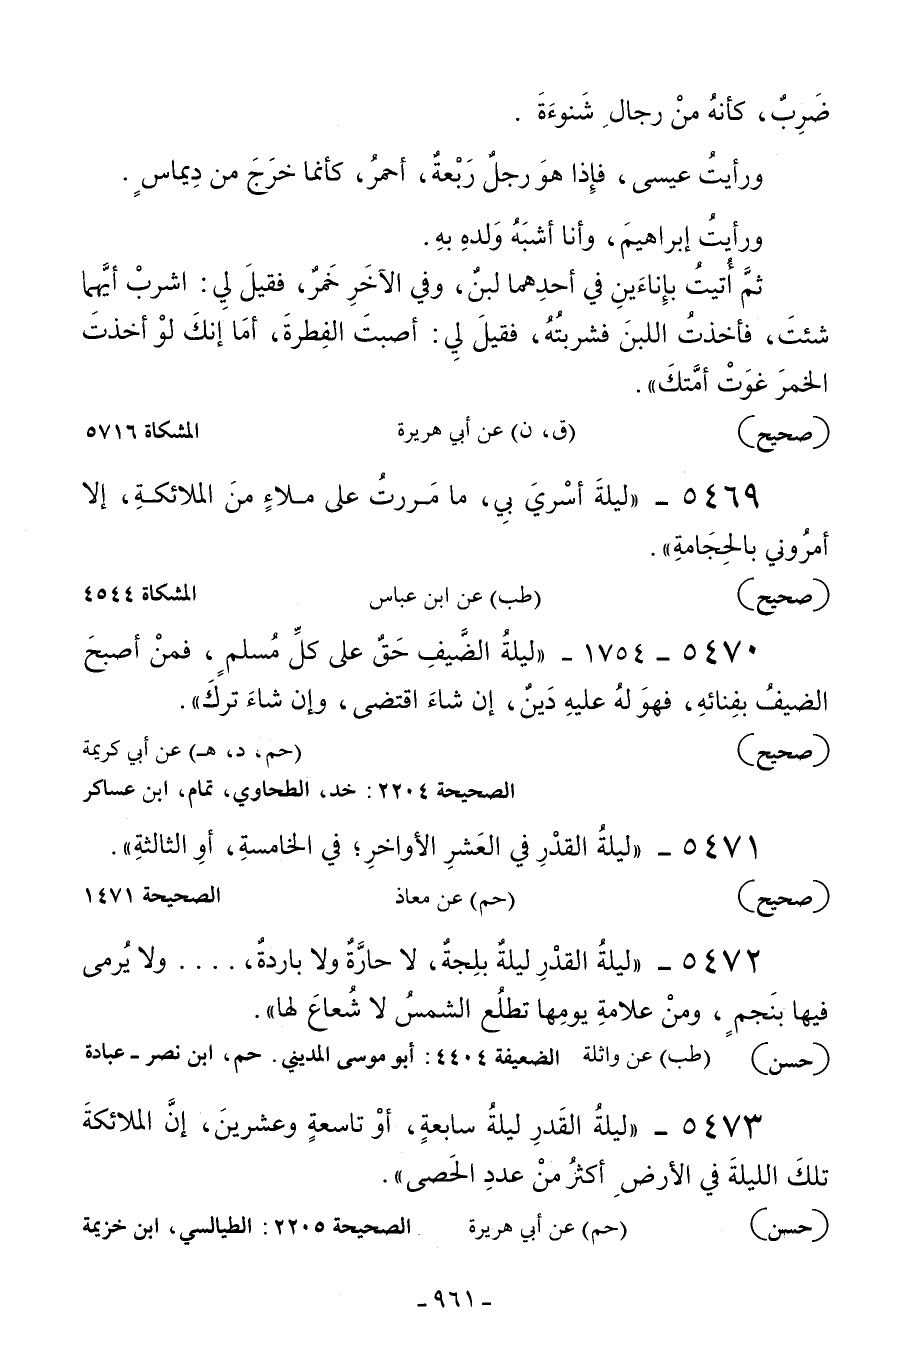 ضَرِبٌ، كأنهُ منْ رجالِ شَنوءَةَ .
ورأيتُ عيسى، فإذا هوَ رجلٌ رَبْعةٌ، أحمرُ، كأنما خرَجَ من دِيماسٍ .
ورأيتُ إبراهيمَ، وأنا أشبَهُ وَلدهِ بهِ.
ثمَّ أُتيتُ بإناءَينِ في أحدِهما لبنٌ، وفي الآخَرِ خمرٌ، فقيلَ لي: اشربْ أيَّهما
شئتَ، فأخذتُ اللبنَ فشربتُهُ، فقيلَ لي: أصبتَ الفِطرةَ، أمَا إنكَ لوْ أخذتَ
الخمرَ غوَتْ أمَّتكَ».
(صحيح) (ق، ن) عن أبي هريرة المشكاة ٥٧١٦
٥٤٦٩ ـ «ليلةَ أسْريَ بي، ما مَررتُ على مـلاءٍ منَ الملائكـةِ، إلا
أمرُوني بالحِجَامةِ» .
(صحيح) (طب) عن ابن عباس المشكاة ٤٥٤٤
٥٤٧٠ ـ ١٧٥٤ ـ «ليلةُ الضَّيفِ حَقٌ على كلِّ مُسلمٍ، فمنْ أصبحَ
الضيفُ بفِنائهِ، فهوَ لهُ عليهِ دَينٌ، إن شاءَ اقتضى، وإن شاءَ تركَ».
(صحيح) (حم، د، هـ) عن أبي كريمة
الصحيحة ٢٢٠٤: خد، الطحاوي، تمام، ابن عساكر
٥٤٧١ ـ «ليلةُ القدْرِ في العَشرِ الأواخرِ؛ في الخامسةِ، أوِ الثالثةِ».
(صحيح) (حم) عن معاذ الصحيحة ١٤٧١
٥٤٧٢ ـ «ليلةُ القدْرِ ليلةٌ بلِجةٌ، لا حارَّةٌ ولا باردةٌ، .... ولا يُرمى
فيها بنَجمٍ، ومنْ علامةِ يومِها تطلُع الشمسُ لا شُعاعَ لها».
(حسن) (طب) عن واثلة الضعيفة ٤٤٠٤: أبو موسى المديني. حم، ابن نصر ـ عبادة
٥٤٧٣ ـ «ليلةُ القَدرِ ليلةُ سابعةٍ، أوْ تاسعةٍ وعشرينَ، إنَّ الملائكةَ
تلكَ الليلةَ في الأرضِ أكثرُ منْ عددِ الحَصى».
(حسن) (حم) عن أبي هريرة الصحيحة ٢٢٠٥: الطيالسي، ابن خزيمة
ـ ٩٦١ ـ